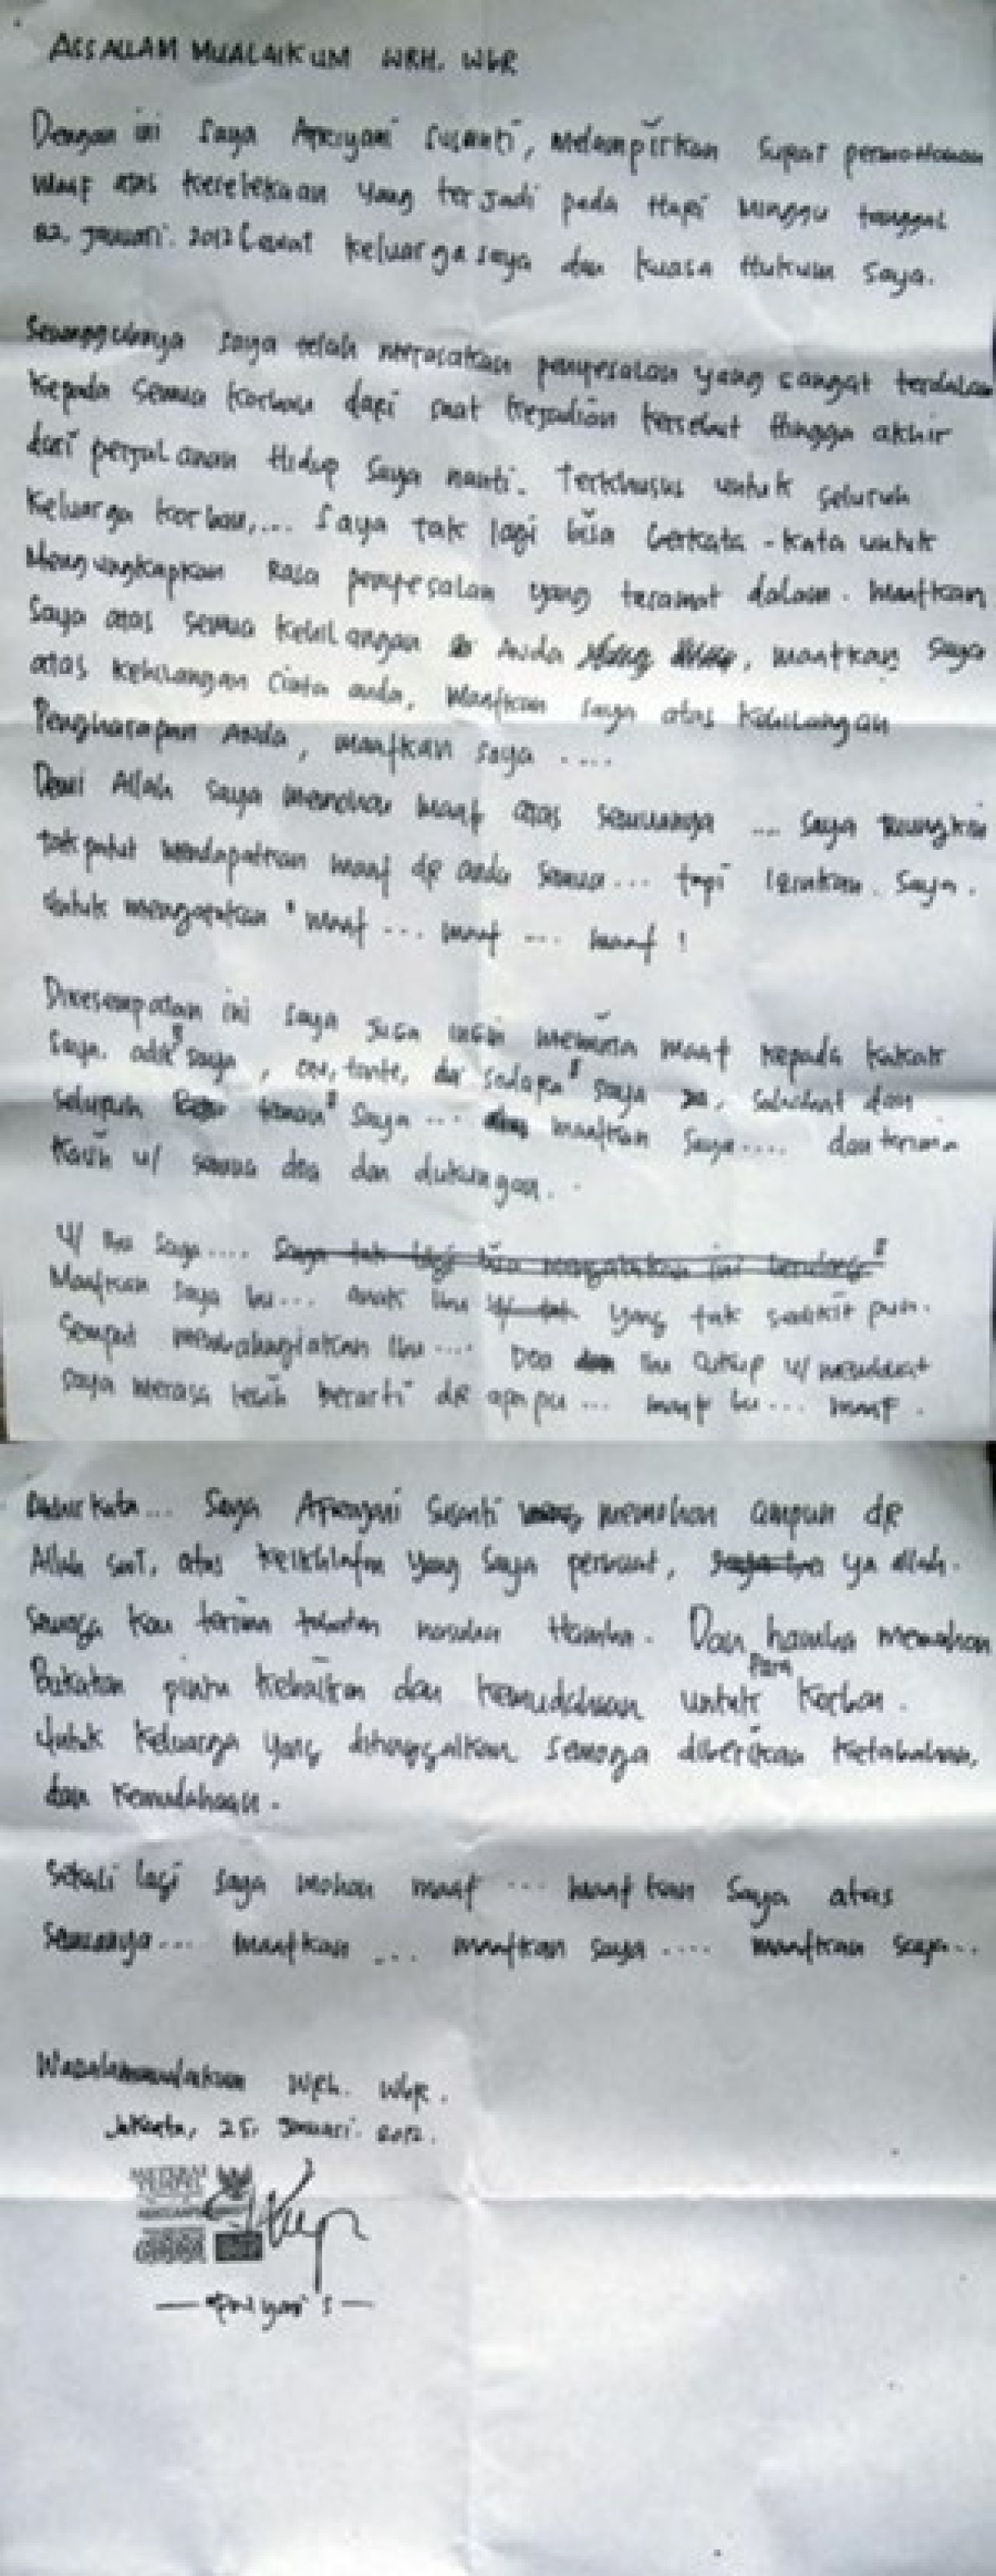 ASSALLAM MUALAIKUM WRH. WbR
Dengan ini saya Apriyani Susanti, Melampirkan Surat permohonan
Maaf atas kecelekaan yang terjadi pada Hari Minggu tanggal
22. Januari. 2012 Lewat keluarga saya dan kuasa Hukum saya.
Sesungguhnya saya telah merasakan penyesalan yang sangat terdalam
kepada semua korban dari saat kejadian tersebut Hingga akhir
dari perjalanan Hidup saya nanti. Terkhusus untuk seluruh
keluarga korban,... Saya tak lagi bisa berkata-kata untuk
Mengungkapkan Rasa penyesalan yang teramat dalam. Maafkan
Saya atas semua kehilangan Anda, maafkan saya
atas kehilangan cinta anda, Maafkan saya atas kehilangan
Pengharapan Anda, maafkan saya ....
Demi Allah saya memohon maaf atas semuanya ... saya mungkin
tak patut mendapatkan maaf dR anda semua... tapi izinkan. Saya.
Untuk mengatakan " maaf ... maaf ... maaf !
Dikesempatan ini saya juga ingin meminta maaf kepada kakak
saya. adik² saya, om, tante, sodara² saya, sahabat dan
seluruh teman² saya ... maafkan saya.... dan terima
kasih u/ semua doa dan dukungan.
U/ Ibu saya.... Saya tak lagi bisa mengatakan ini berulang²
Maafkan saya bu... anak Ibu yang tak sedikit pun.
Sempat membahagiakan Ibu.... Doa Ibu cukup u/ membuat
saya merasa lebih berarti dR apapu... maaf bu... maaf.
kata... Saya Apriyani Susanti memohon ampun dR
Allah swt, atas kekhilafan yang saya perbuat, ya allah.
Semoga kau terima taubatan nasuha Hamba. Dan hamba memohon
Bukakan pintu kebaikan dan kemudahaan untuk para korban.
Untuk keluarga yang ditinggalkan semoga diberikan ketabahan,
dan kemudahaan.
Sekali lagi saya mohon maaf ... maafkan saya atas
Semuanya... maafkan ... maafkan saya .... maafkan saya...
WRh. WbR.
Jakarta, 25. Januari. 2012.
TEMPEL
— Apriyani S —